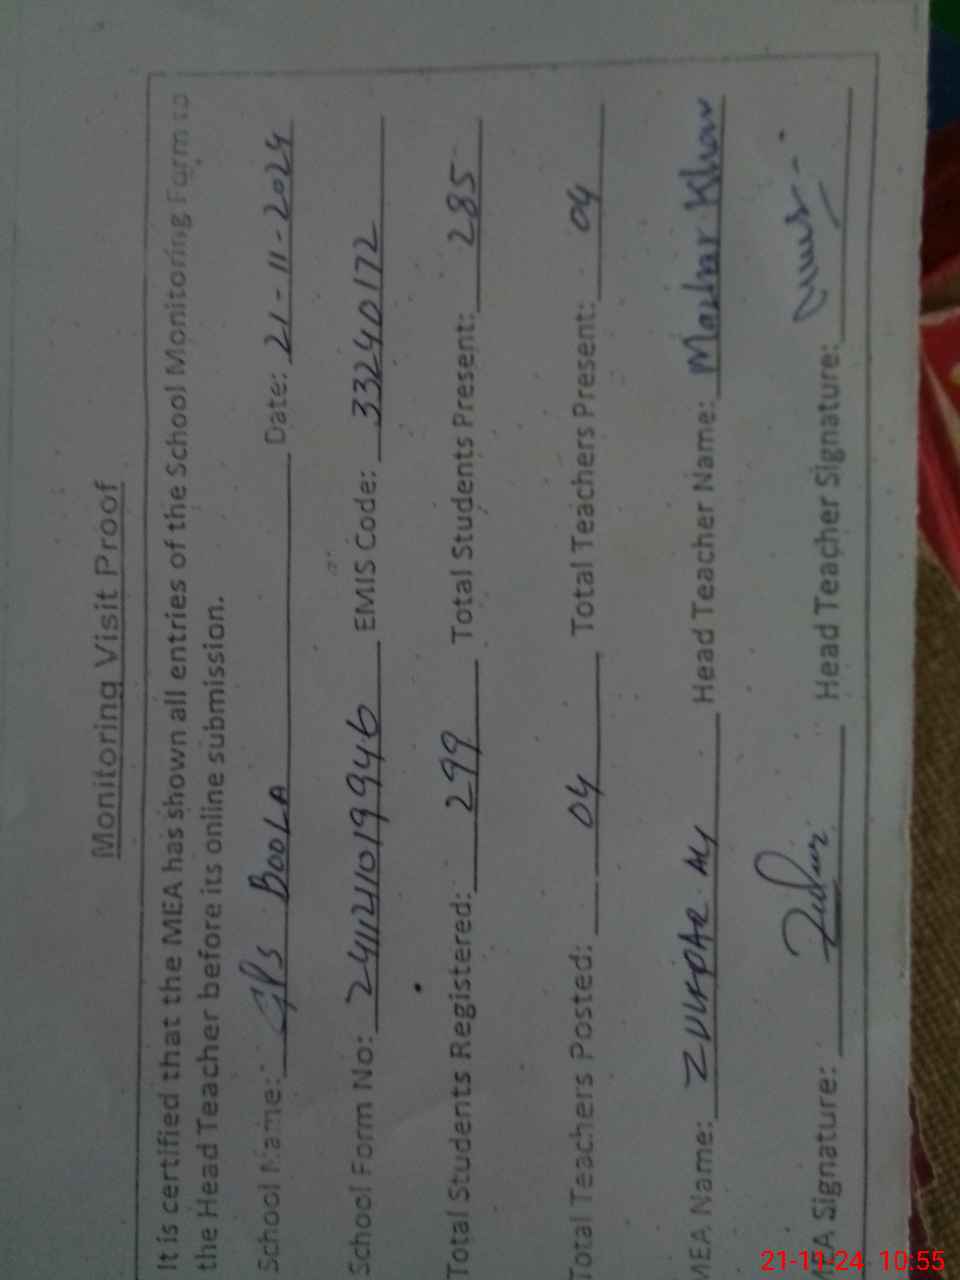 Monitoring Visit Proof
It is certified that the MEA has shown all entries of the School Monitoring Form to
the Head Teacher before its online submission.
School Name: GPS BOOLA Date: 21-11-2024
School Form No: 241121019946 EMIS Code: 33240172
Total Students Registered: 299 Total Students Present: 285
Total Teachers Posted: 04 Total Teachers Present: 04
MEA Name: ZULFQAR ALY Head Teacher Name: Mazhar Khan
MEA Signature: Head Teacher Signature:
21-11-24 10:55